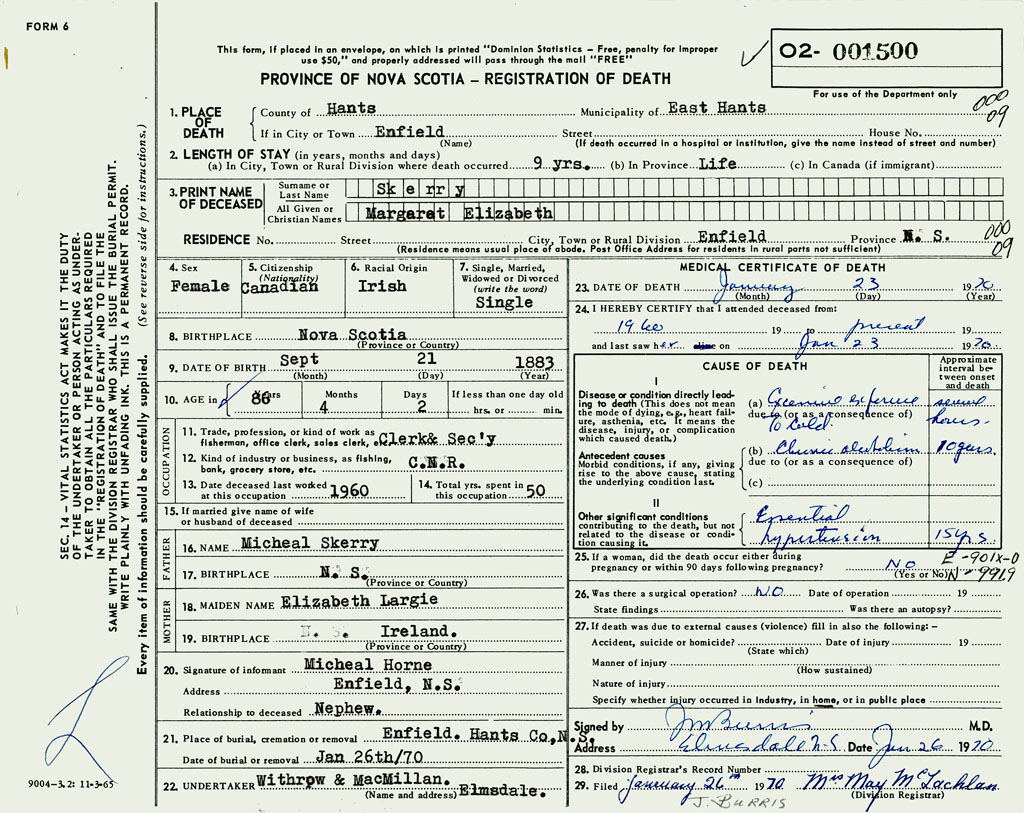 FORM 6
This form, if placed in an envelope, on which is printed "Dominion Statistics – Free, penalty for improper
use $50," and properly addressed will pass through the mail "FREE"
PROVINCE OF NOVA SCOTIA – REGISTRATION OF DEATH
02- 001500
For use of the Department only
SEC. 14 – VITAL STATISTICS ACT MAKES IT THE DUTY
OF THE UNDERTAKER OR PERSON ACTING AS UNDER-
TAKER TO OBTAIN ALL THE PARTICULARS REQUIRED
IN THE "REGISTRATION OF DEATH" AND TO FILE THE
SAME WITH THE DIVISION REGISTRAR WHO SHALL ISSUE THE BURIAL PERMIT.
WRITE PLAINLY WITH UNFADING INK. THIS IS A PERMANENT RECORD.
Every item of information should be carefully supplied. (See reverse side for instructions.)
1. PLACE OF DEATH
County of Hants Municipality of East Hants
000
09
If in City or Town Enfield Street House No.
(Name) (If death occurred in a hospital or institution, give the name instead of street and number)
2. LENGTH OF STAY (in years, months and days)
(a) In City, Town or Rural Division where death occurred 9 yrs. (b) In Province Life (c) In Canada (if immigrant)
3. PRINT NAME OF DECEASED
Surname or Last Name Skerry
All Given or Christian Names Margaret Elizabeth
RESIDENCE No. Street City, Town or Rural Division Enfield Province N. S.
000
09
(Residence means usual place of abode. Post Office Address for residents in rural parts not sufficient)
4. Sex
Female
5. Citizenship
(Nationality)
Canadian
6. Racial Origin
Irish
7. Single, Married,
Widowed or Divorced
(write the word)
Single
8. BIRTHPLACE Nova Scotia
(Province or Country)
9. DATE OF BIRTH Sept 21 1883
(Month) (Day) (Year)
10. AGE in Years Months Days If less than one day old
86 4 2 hrs. or min.
OCCUPATION
11. Trade, profession, or kind of work as
fisherman, office clerk, sales clerk, etc. Clerk& Sec'y
12. Kind of industry or business, as fishing,
bank, grocery store, etc. C.N.R.
13. Date deceased last worked
at this occupation 1960
14. Total yrs. spent in
this occupation 50
15. If married give name of wife
or husband of deceased
FATHER
16. NAME Micheal Skerry
17. BIRTHPLACE N. S.
(Province or Country)
MOTHER
18. MAIDEN NAME Elizabeth Largie
19. BIRTHPLACE Ireland.
(Province or Country)
20. Signature of informant Micheal Horne
Address Enfield, N.S.
Relationship to deceased Nephew.
21. Place of burial, cremation or removal Enfield. Hants Co,N.S.
Date of burial or removal Jan 26th/70
22. UNDERTAKER Withrow & MacMillan.
(Name and address) Elmsdale.
9004-3.2: 11-3-65
MEDICAL CERTIFICATE OF DEATH
23. DATE OF DEATH January 23 1970
(Month) (Day) (Year)
24. I HEREBY CERTIFY that I attended deceased from:
19 to present 19
and last saw her on Jan 23 1970
CAUSE OF DEATH
Approximate
interval be-
tween onset
and death
I
Disease or condition directly lead-
ing to death (This does not mean
the mode of dying, e.g., heart fail-
ure, asthenia, etc. It means the
disease, injury, or complication
which caused death.)
(a) exposure several
due to (or as a consequence of)
to Cold. hours.
Antecedent causes
Morbid conditions, if any, giving
rise to the above cause, stating
the underlying condition last.
(b) Chronic alcoholism 10 years.
due to (or as a consequence of)
(c)
II
Other significant conditions
contributing to the death, but not
related to the disease or condi-
tion causing it.
Essential
hypertension 15 yrs.
25. If a woman, did the death occur either during
pregnancy or within 90 days following pregnancy? NO
(Yes or No)
E-901X-0
N-9919
26. Was there a surgical operation? NO Date of operation 19
State findings Was there an autopsy?
27. If death was due to external causes (violence) fill in also the following: –
Accident, suicide or homicide? Date of injury 19
(State which)
Manner of injury
(How sustained)
Nature of injury
Specify whether injury occurred in industry, in home, or in public place
Signed by JM Burris M.D.
Address Elmsdale N-S. Date Jan 26 1970
28. Division Registrar's Record Number
29. Filed January 26th 1970 Mrs May McLachlan
(Division Registrar)
J. BURRIS